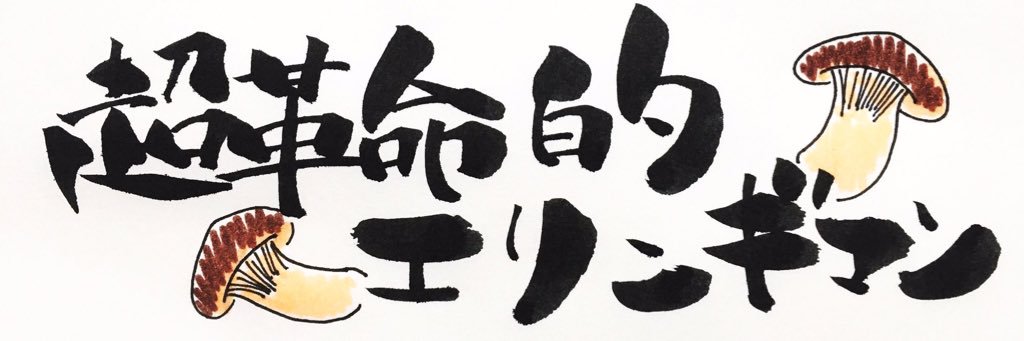 超革命的
エリンギマン